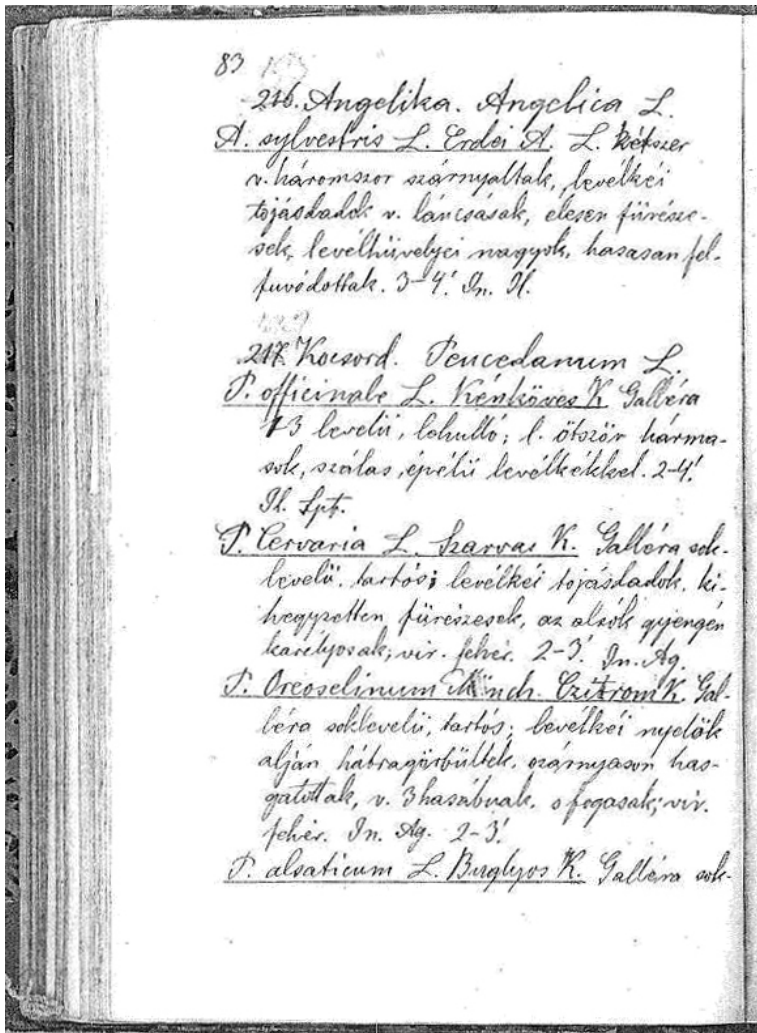 83
216. Angelika. Angelica L.
A. sylvestris L. Erdei A. L. kétszer
v. háromszor szárnyaltak, levélkéi
tojásdadok v. láncsásak, élesen fürésze-
sek, levélhüvelyei nagyok, hasasan fel-
fuvódottak. 3-4'. Jn. Jl.
217. Kocsord. Peucedanum L.
P. officinale L. Kénköves K. Galléra
1-3 levelü, lehulló; l. ötször hárma-
sok, szálas, épélü levélkékkel. 2-4'.
Jl. Spt.
P. Cervaria L. Szarvas K. Galléra sok-
levelü, tartós; levélkéi tojásdadok, ki-
hegyzetten fürészesek, az alsók gyengén
karélyosak; vir. fehér. 2-3'. Jn. Ag.
P. Oreoselinum Mönch. Czitrom K. Gal-
léra soklevelü, tartós; levélkéi nyelök
alján hátragörbültek, szárnyason has-
gatottak, v. 3 hasábuak, s fogasak; vir.
fehér. Jn. Ag. 2-3'.
P. alsaticum L. Buglyos K. Galléra sok-